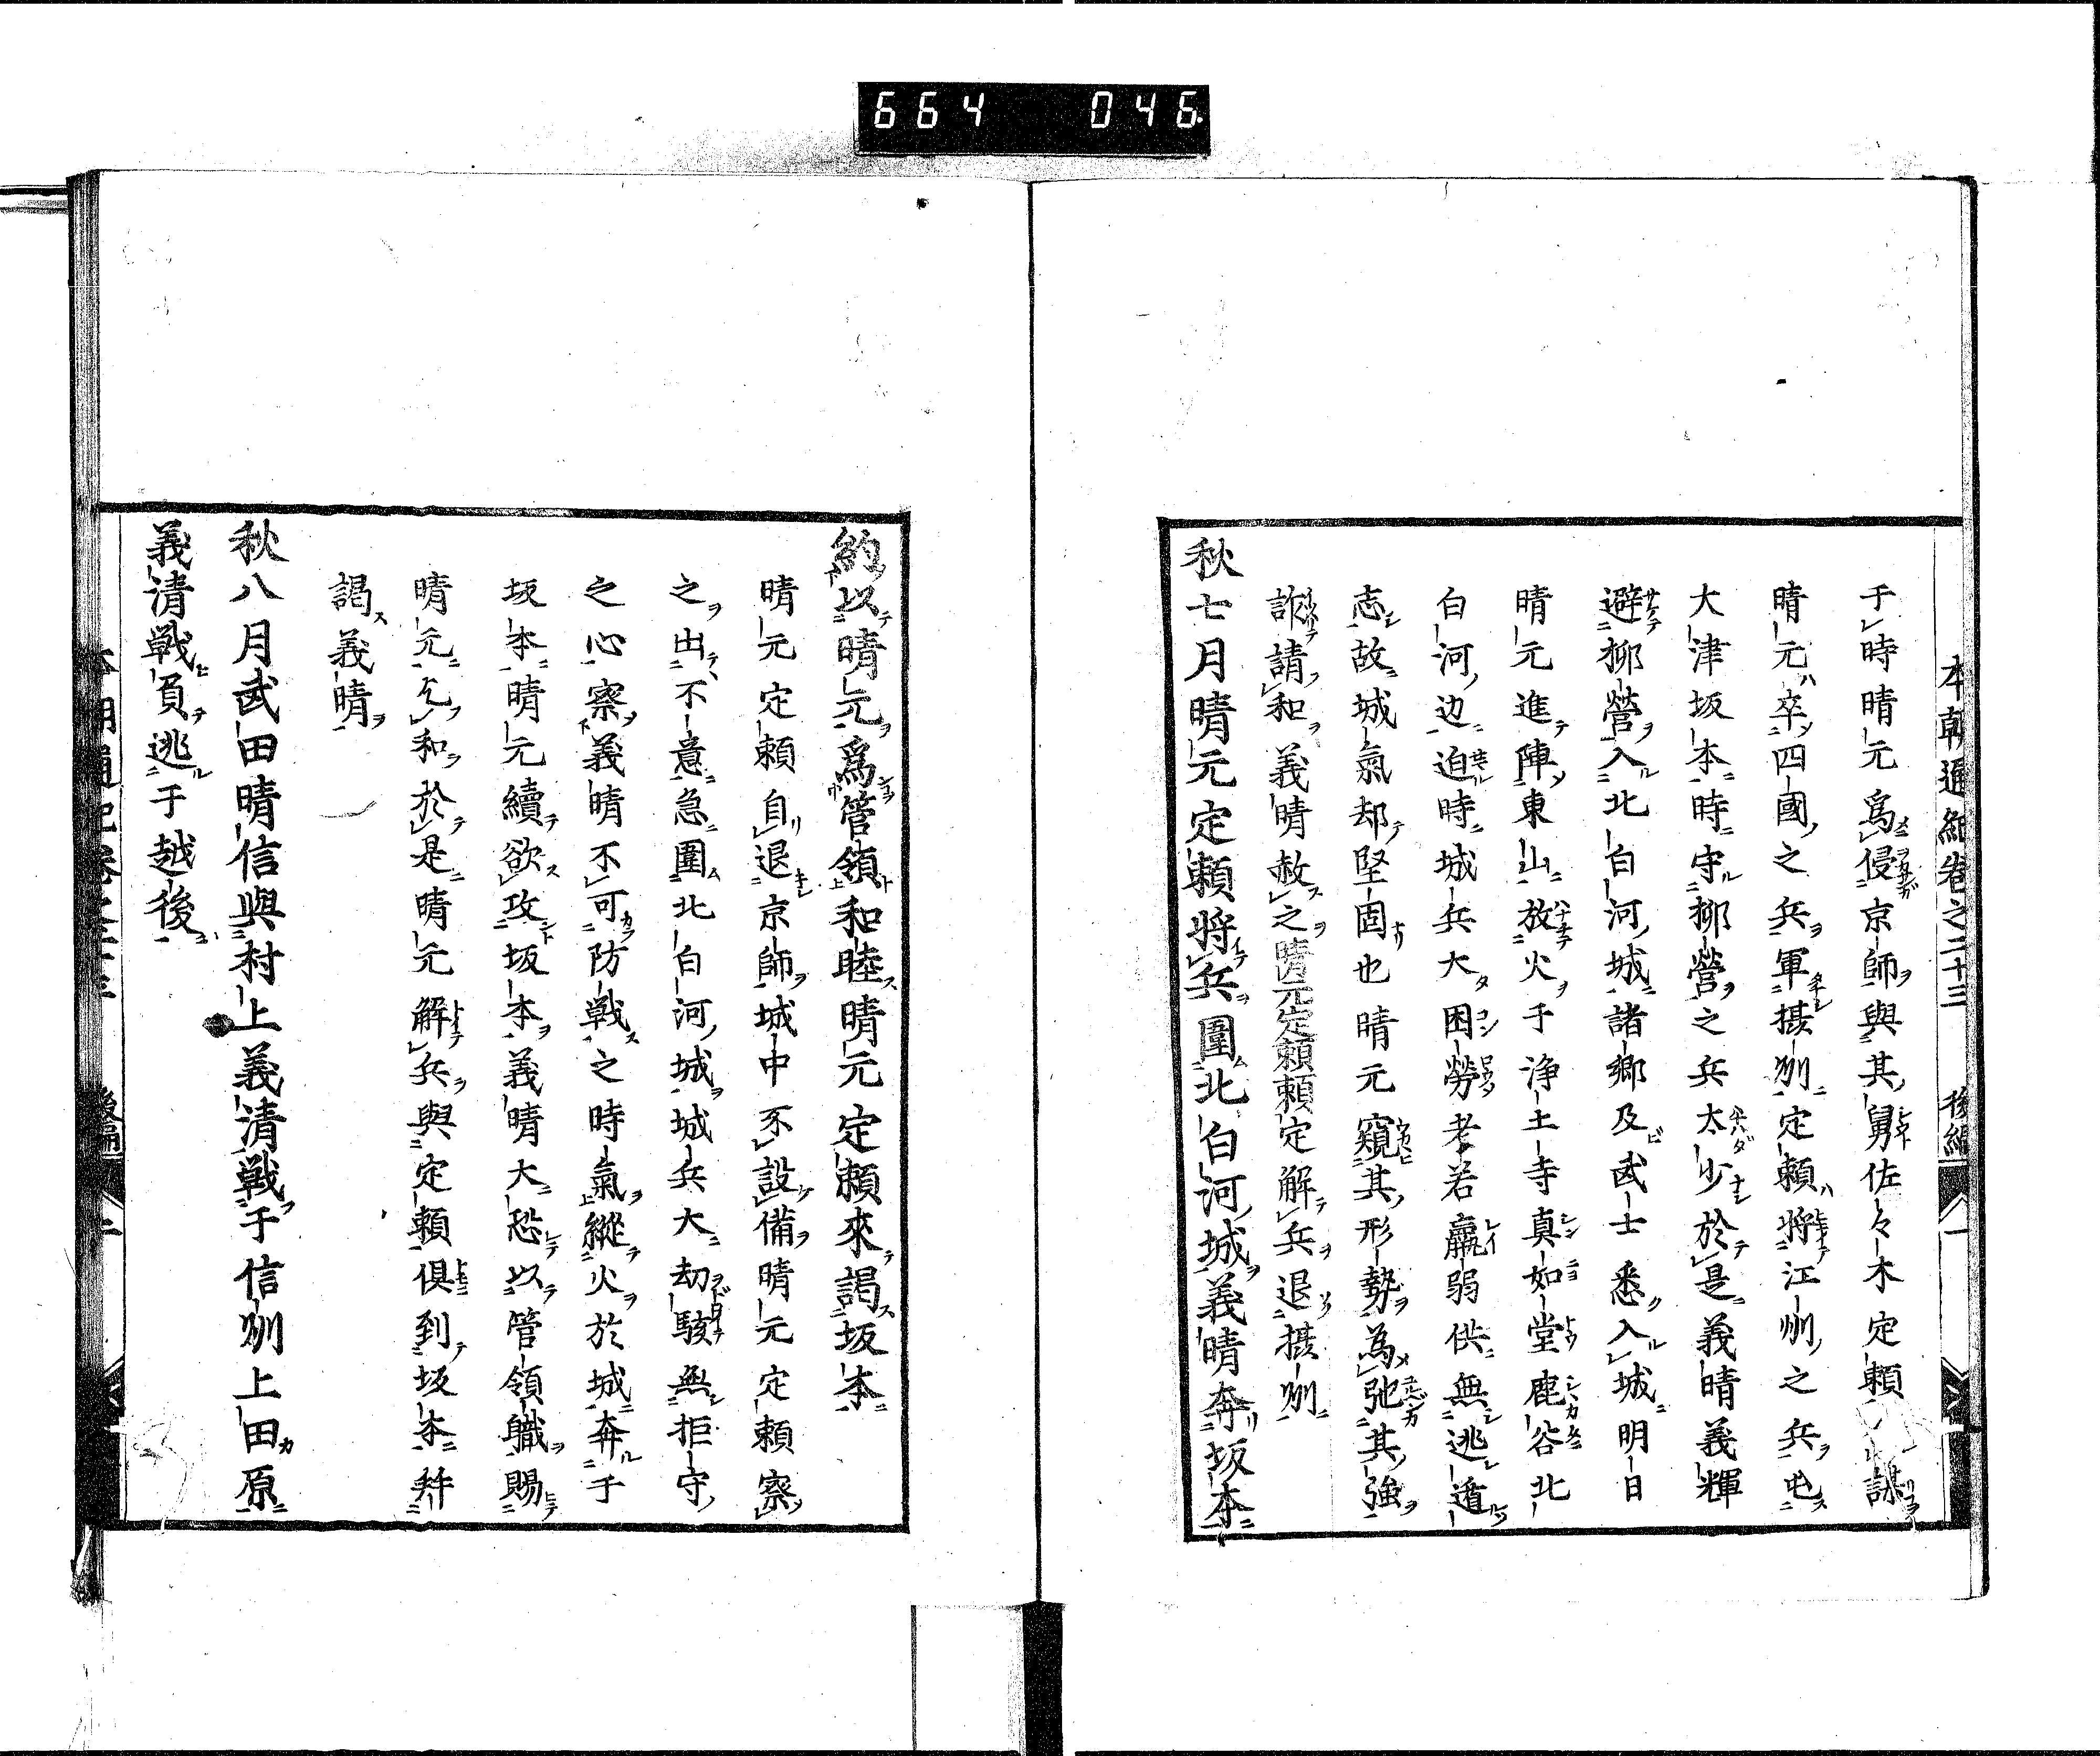 664 046
本朝通紀卷之二十三 後編 一
于時晴元爲侵京師與其舅佐々木定頼謀
晴元卒四國之兵軍摂刕定頼將江刕之兵屯
大津坂本時守柳營之兵太少於是義晴義輝
避柳營入北白河城諸郷及武士悉入城明日
晴元進陣東山放火于浄土寺真如堂鹿谷北
白河边迫時城兵大困勞老若羸弱供無逃遁
志故城氣却堅固也晴元窺其形勢為弛其強
詐請和義晴赦之晴元定頼頼定解兵退摂刕
秋七月晴元定頼將兵圍北白河城義晴奔坂本
約以晴元爲管領和睦晴元定頼來謁坂本
晴元定頼自退京師城中不設備晴元定頼察
之出不意急圍北白河城城兵大劫駭無拒守
之心察義晴不可防戦之時氣縱火於城奔于
坂本晴元續欲攻坂本義晴大恐以管領職賜
晴元乞和於是晴元解兵與定頼倶到坂本幷
謁義晴
秋八月武田晴信與村上義清戦于信刕上田原
義清戦負逃于越後
本朝通紀卷之二十三 後編 二